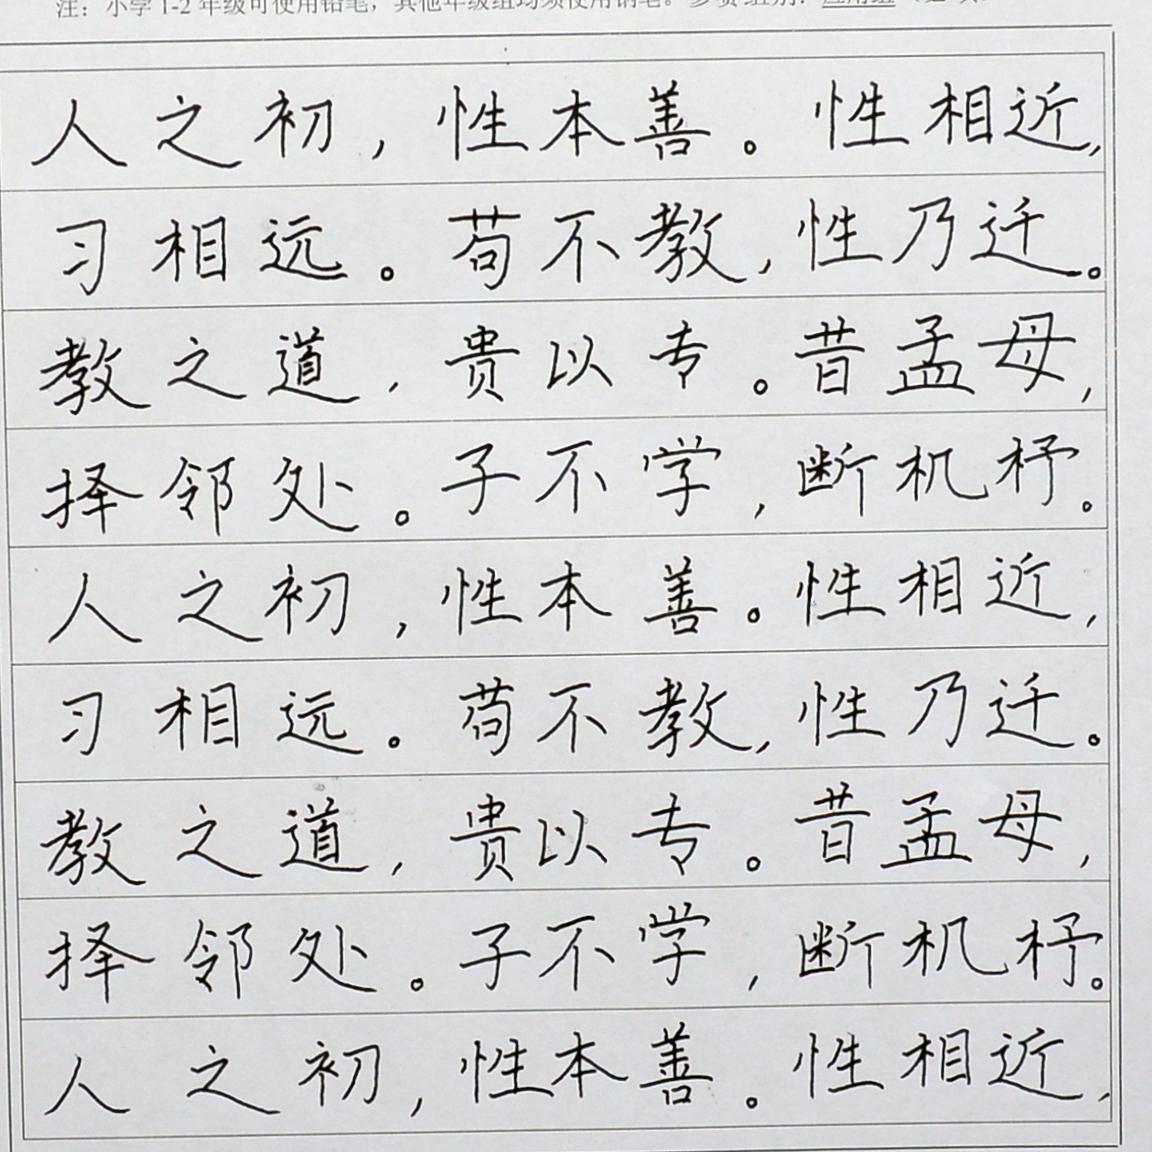 注：小学1-2年级可使用铅笔，其他年级组均须使用钢笔。参赛组别：
人之初，性本善。性相近，
习相远。苟不教，性乃迁。
教之道，贵以专。昔孟母，
择邻处。子不学，断机杼。
人之初，性本善。性相近，
习相远。苟不教，性乃迁。
教之道，贵以专。昔孟母，
择邻处。子不学，断机杼。
人之初，性本善。性相近，